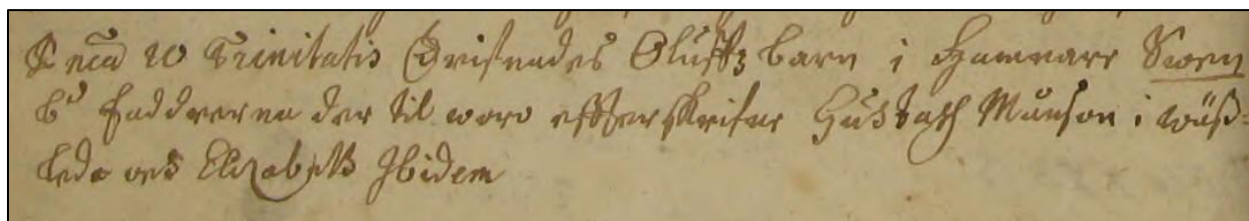 Dnica 20 Trinitatis Christnades Oluffz barn i Hamrare Swen
bd faddrerna der til woro effterskrifne Gustaff Månson i wäss=
leda och Elizabeth Ibidem